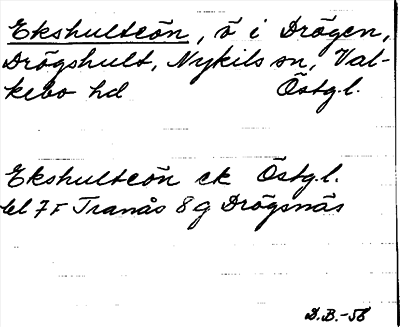 Ekshulteön, ö i Drögen,
Drögshult, Nykils sn, Val-
kebo hd Östg.l.
Ekshulteön ek Östg.l.
bl 7F Tranås 8g Drögsnäs
D.B.-56